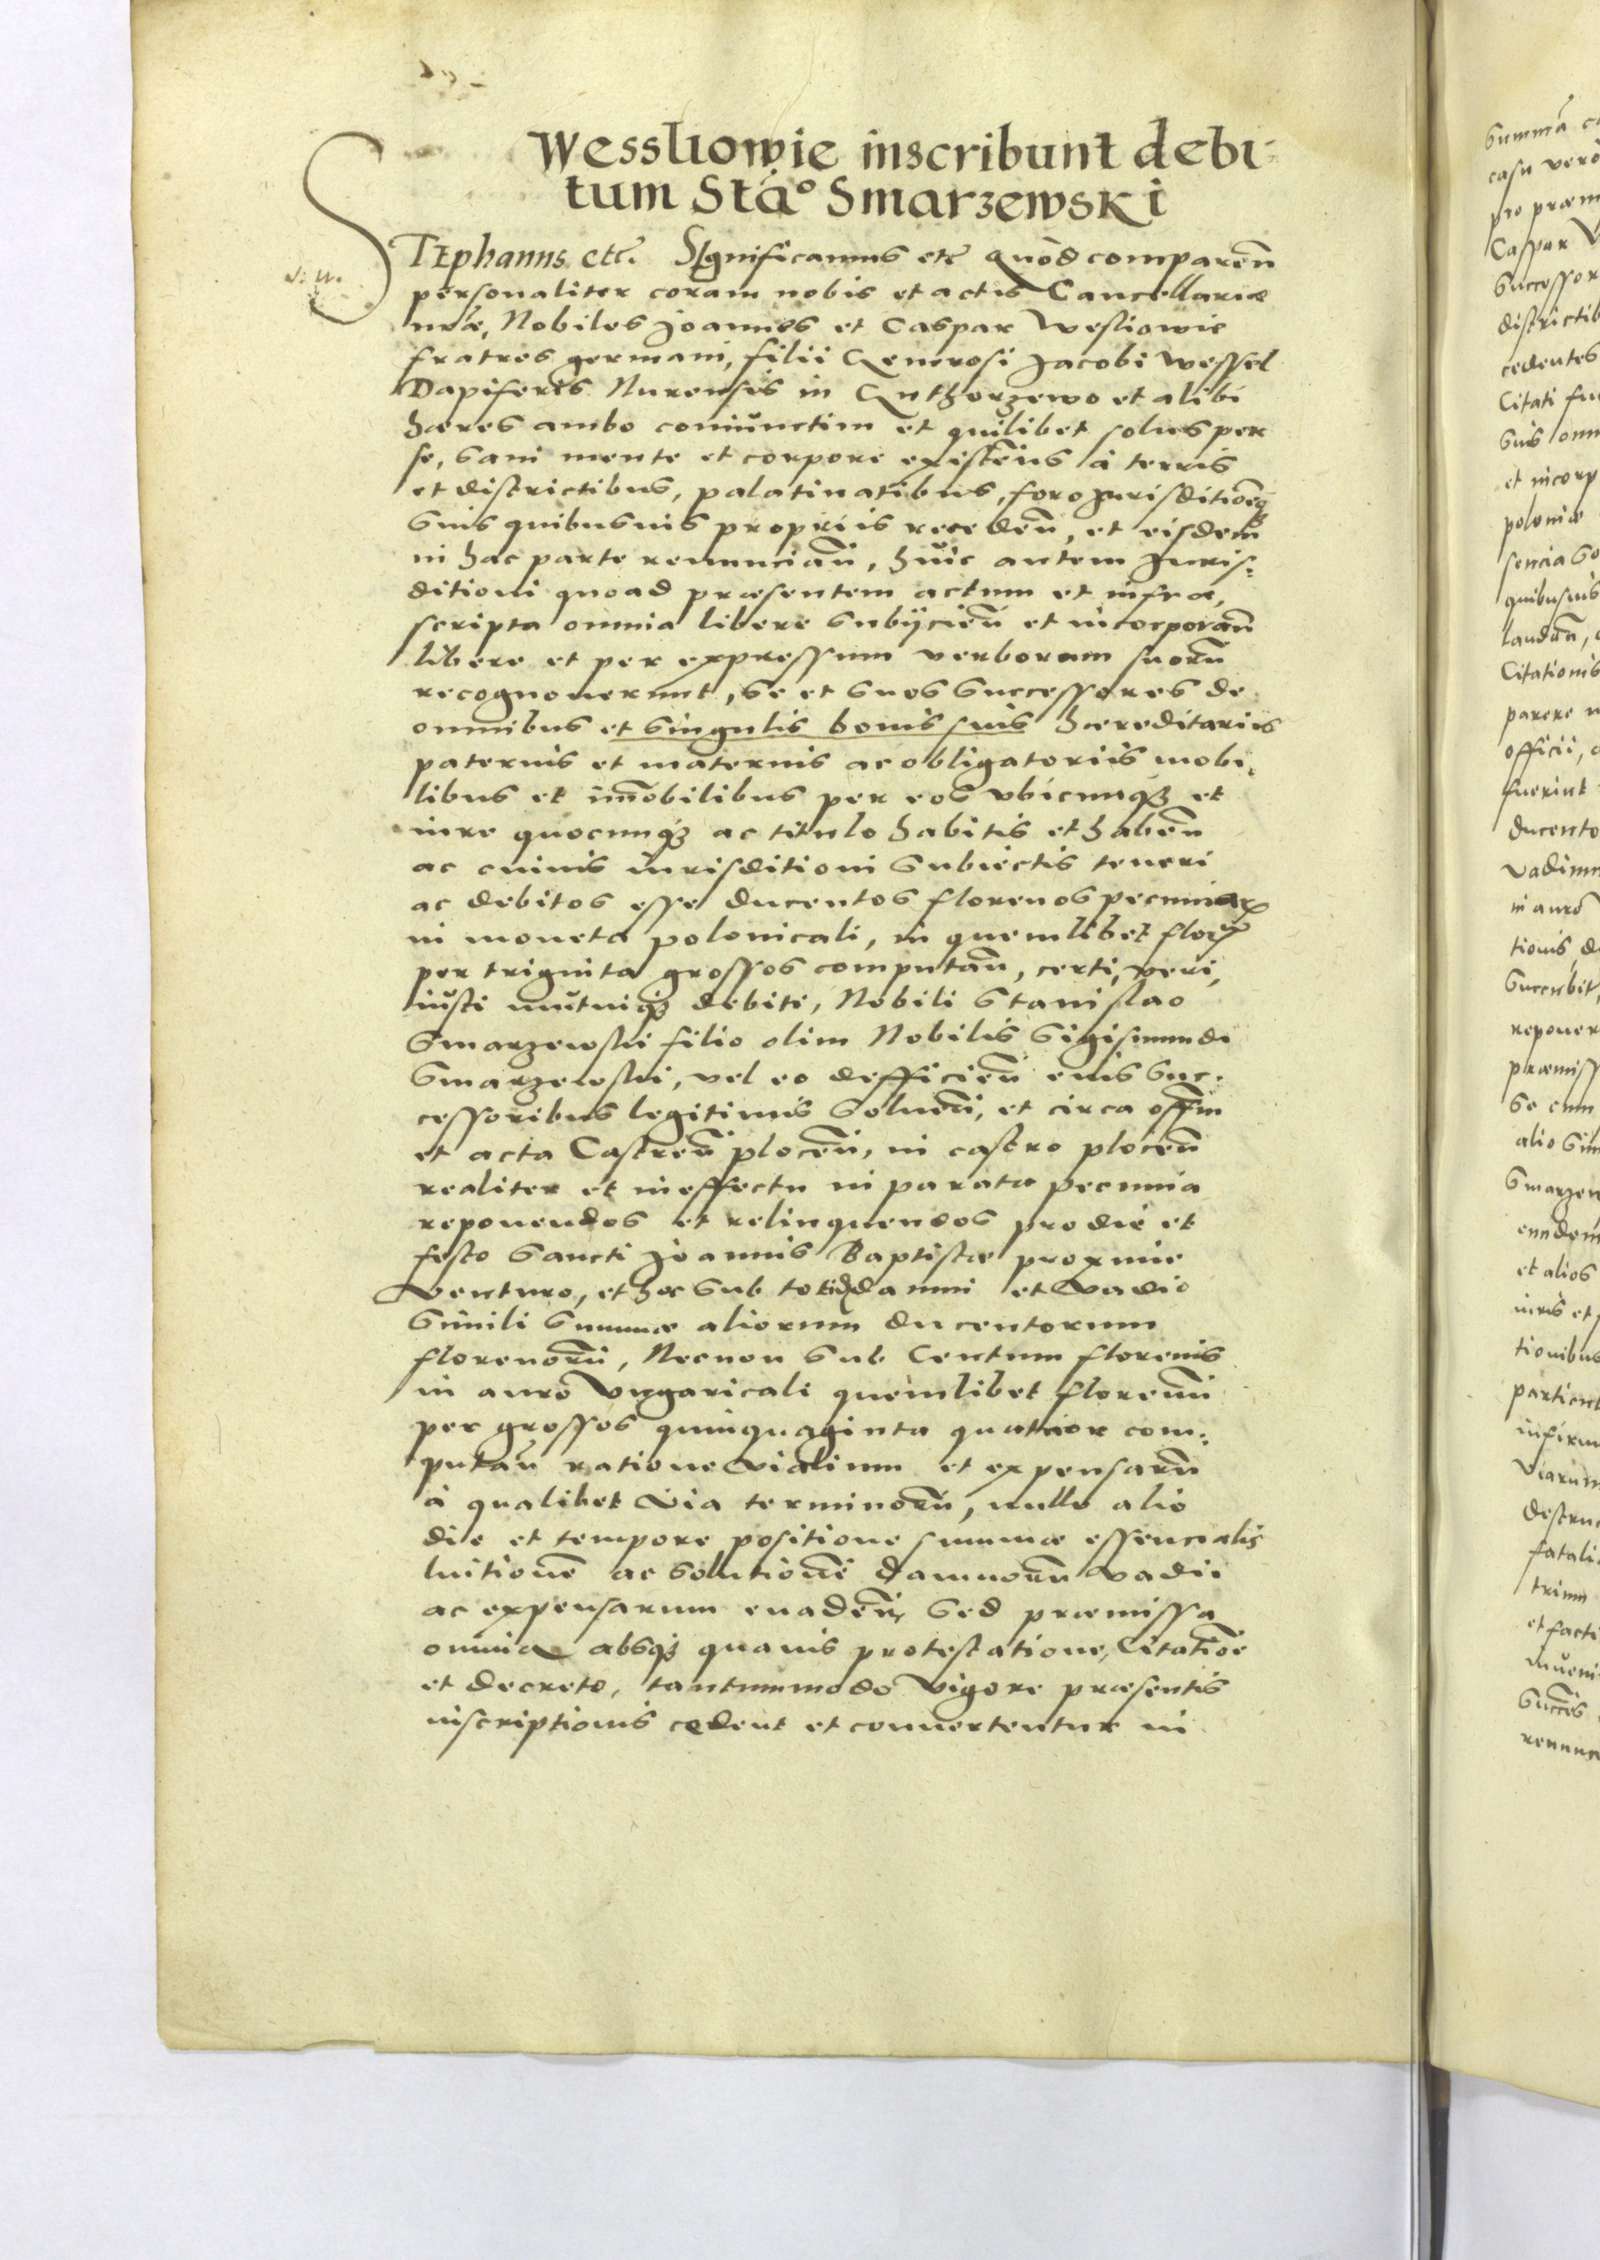 Wessliowie inscribunt debi-
tum Stão Smarzewski
STEphanus etc. Significamus etc Quòd comparen̄
personaliter coram nobis et actis Cancellariæ
nr̄æ, Nobiles Joannes et Caspar Wesliowie
fratres germani, filii Generosi Jacobi Wessel
Dapiferis Nurensis in Guthorzewo et alibi
hæres ambo coniunctim et quilibet solus per
se, sani mente et corpore existen̄s à terris
et districtibus, palatinatibus, foro Jurisditioneq̃
suis quibusuis propriis receden̄, et eisdem
in hac parte renuncian̄, huic autem Juris-
ditioni quoad præsentem actum et infra
scripta omnia libere subijcien̄ et incorporan̄
libere et per expressum verborum suorū
recognouerunt, se et suos successores de
omnibus et singulis bonis suis hæreditariis
paternis et maternis ac obligatoriis mobi-
libus et im̄obilibus per eos vbicunq3 et
iure quocunq3 ac titulo habitis et haben̄
ac cuiuis iurisditioni subiectis teneri
ac debitos esse ducentos florenos pecuniar̃
in moneta polonicali, in quemlibet flor̃
per triginta grossos computan̄, certi, veri,
iusti mutuiq3 debiti, Nobili Stanislao
Smarzewski filio olim Nobilis Sigismundi
Smarzewski, vel eo defficien̄ eius suc-
cessoribus legitimis soluen̄, et circa off̄m
et acta Castren̄ plocen̄, in castro plocen̄
realiter et in effectu in parata pecunia
reponendos et relinquendos pro die et
festo Sancti Joannis Baptistæ proxime
venturo, et hoc sub totidem damni et vadio
simili summæ aliorum ducentorum
florenorū, Necnon sub Centum florenis
in auro Vngaricali quemlibet florenū
per grossos quinquaginta quatuor com-
putan̄ ratione vialium et expensarū
à qualibet via terminorū, nullo alio
die et tempore positione summæ essencialis
luitionē ac solutionē damnorū vadii
ac expensarum euaden̄, sed præmissa
omnia absq3 quauis protestatione, Citatiōe
et decreto, tantummodo vigore præsentis
inscriptionis cedent et conuertentur in
summā
casu verò
pro præm
Caspar
Successor
districtib
cedentes
Citati
suis omn
et incorp
poloniæ
quibusuis
laudan̄,
Citationis
parere
officii,
fuerint
ducento
vadium
in auro
tionis,
succubit,
reponer
præmiss
se cum
alio sim
Smarzew
eundem
et alios
iuris et
tionibus
particul
infirm
viarum
destru
fatali
trium
et facti
inueni